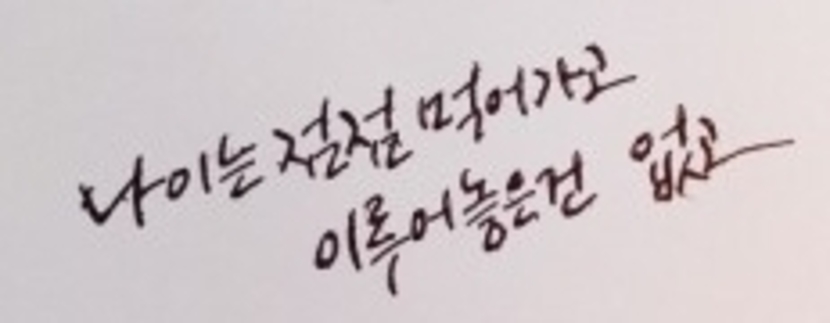 나이는 점점 먹어가고
이루어놓은건 없고